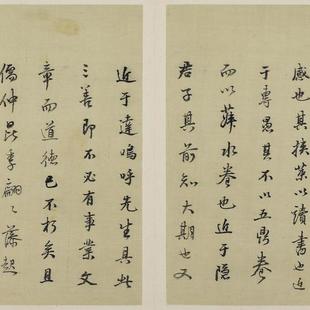 感也其挟策以讀書也近
于專愚其不以五鼎養
而以菽水養也近于隐
君子其前知大期也又
近于達嗚呼先生具此
三善即不必有事業文
章而道德已不朽矣且
仲昆季翩々起